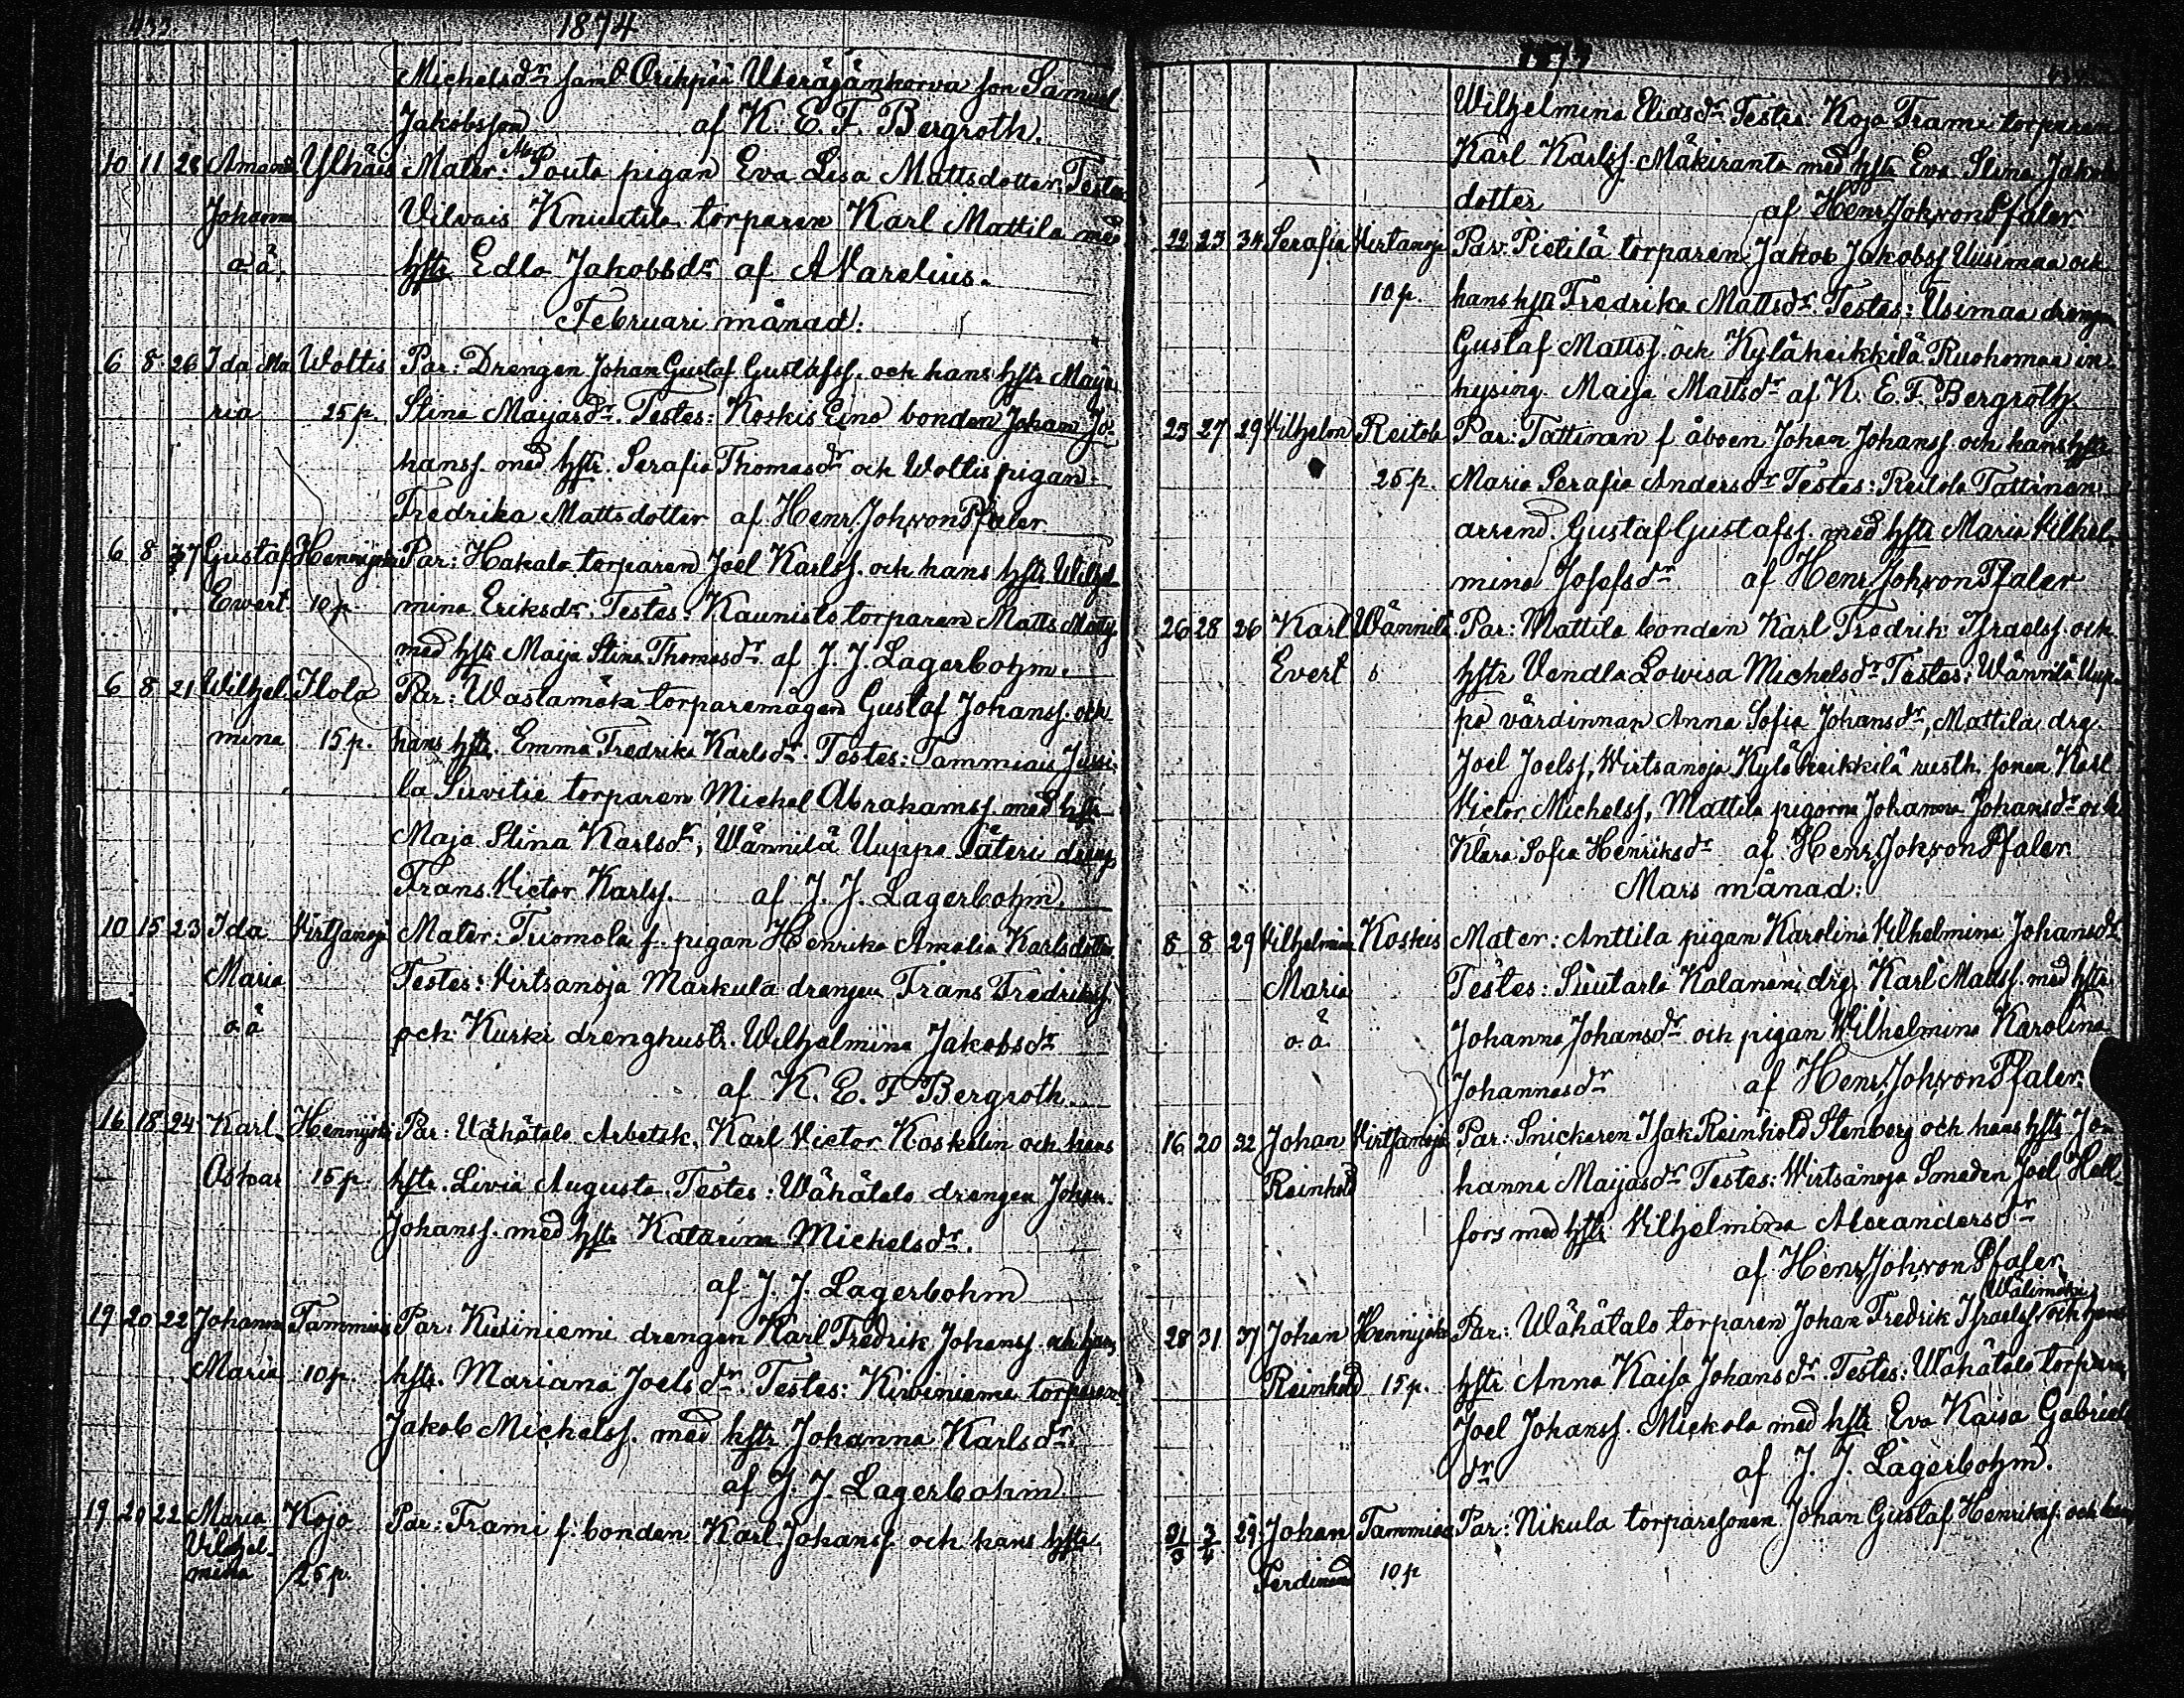 1874
Michelsdr samt Orihpää Uteräjänkorva son Samuel
Jakobsson af K. E. F. Bergroth.
10 11 28 Amanda Ylhäis Mater: Pouta pigan Eva Lisa Mattsdotter. Testes
Johanna Vilvais Knuutila torparen Karl Mattila med
o.ä. hstr Edla Jakobsdr af A Varelius.
Februari månad:
6 8 26 Ida Ma Woltis Par: Drengen Johan Gustaf Gustafss. och hans hstr Maija
ria 25 p. Stina Maijasdr. Testes: Koskis Eino bonden Johan Jo-
hanss. med hstr. Serafia Thomasdr och Woltis pigan
Fredrika Mattsdotter af Henr. Joh. von Pfaler
6 8 37 Gustaf Hennijoki Par: Hakala torparen Joel Karlss. och hans hstr Wilhel
Ewert 10 p. mina Eriksdr. Testes: Kaunisto torparen Matts Matts
med hstr Maija Stina Thomasdr. af J. J. Lagerbohm.
6 8 21 Wilhel Ilola Par: Wastamäki torparemågen Gustaf Johanss. och
mina 15 p. hans hstr. Emma Fredrika Karlsdr. Testes: Tammiais Jussi-
la Suvitie torparen Michel Abrahamss. med hstr
Maja Stina Karlsdr, Wännilä Uuppa Säteri dreng
Frans Victor Karlss. af J. J. Lagerbohm.
10 15 23 Ida Virtsanoja Mater: Tuomola f. pigan Henrika Amalia Karlsdotter.
Maria Testes: Virtsanoja Markula drengen Frans Fredrikss.
o.ä och Kurki drenghustr. Wilhelmina Jakobsdr
af K. E. F Bergroth.
16 18 24 Karl Hennijoki Par: Vähätalo Arbetsk. Karl Victor Koskelin och hans
Oskar 15 p. hstr. Livia Augusta. Testes: Wähätalo drengen Johan
Johanss. med hstr Katarina Michelsdr.
af J. J. Lagerbohm
19 20 22 Johanna Tammiais Par: Kiviniemi drengen Karl Fredrik Johanss. och hans
Maria 10 p. hstr. Mariana Joelsdr. Testes: Kiviniemi torparen
Jakob Michelss. med hstr Johanna Karlsdr.
af J. J. Lagerbohm
19 20 22 Maria Kojo Par: Trami f. bonden Karl Johanss och hans hstr
Vilhel-
mina 25 p.
1874
Wilhelmina Eliasdr Testes: Kojo Trami torparen
Karl Karlss. Mäkiranta med hstr Eva Stina Jakobs
dotter af Henr. Joh. von Pfaler
22 23 34 Serafia Virtanoja Par: Pietilä torparen Jakob Jakobss Uusimaa och
10 p. hans hstr Fredrika Mattsdr. Testes: Usimaa drengen
Gustaf Mattss. och Kyläheikkilä Ruohomaa in-
hysing Maija Mattsdr af K. E. F. Bergroth.
25 27 29 Vilhelm Reitola Par: Tattinen f åboen Johan Johanss. och hans hstr
25 p. Maria Serafia Andersdr Testes: Reitola Tattinen
arrend. Gustaf Gustafss. med hstr Maria Vilhel-
mina Josefsdr af Henr. Joh. von Pfaler
26 28 26 Karl Wännilä Par: Mattila bonden Karl Fredrik Israelss. och
Evert hstr Vendla Lowisa Michelsdr Testes: Wännilä Uup-
pa värdinnan Anna Sofia Johansdr, Mattila drg.
Joel Joelss, Wirtsanoja Kyläheikkilä rusth. sonen Karl
Victor Michelss, Mattila pigorna Johanna Johansdr och
Klara Sofia Henriksdr af Henr. Joh. von Pfaler.
Mars månad:
8 8 29 Vilhelmina Koskis Mater: Anttila pigan Karolina Vilhelmina Johansdr
Maria Testes: Suutarla Kalanen drg. Karl Mattss. med hstr
o.ä. Johanna Johansdr och pigan Wilhelmina Karolina
Johannesdr af Henr. Joh. von Pfaler
16 20 32 Johan Virtsanoja Par: Snickaren Isak Reinhold Stenberg och hans hstr Jo-
Reinhold hanna Maijasdr Testes: Wirtsanoja Smeden Joel Hell-
fors med hstr Vilhelmina Alexandersdr
af Henr. Joh. von Pfaler
Wälimäki
28 31 37 Johan Hennijoki Par: Wähätalo torparen Johan Fredrik Israelss och hans
Reinhold 15 p. hstr Anna Kaisa Johansdr. Testes: Wähätalo torparen
Joel Johanss. Mickola med hstr Eva Kaisa Gabriels
dr af J. J. Lagerbohm.
31/3 3/4 29 Johan Tammiais Par: Nikula torparesonen Johan Gustaf Henrikss. och hans
Ferdinand 10 p